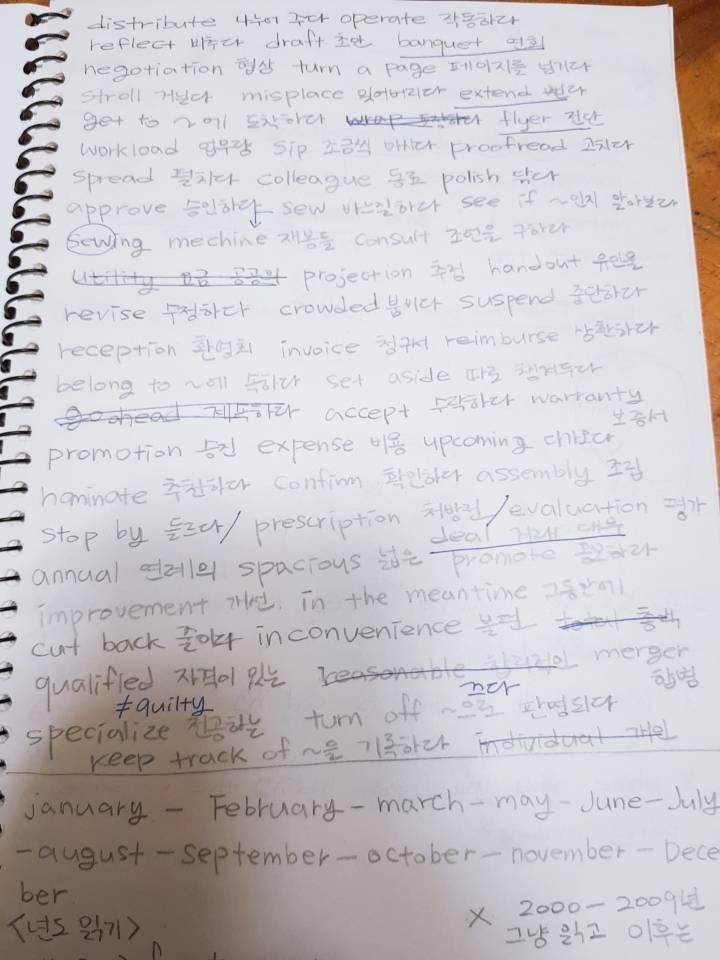 distribute 나누어 주다 operate 작동하다
reflect 비추다 draft 초안 banquet 연회
negotiation 협상 turn a page 페이지를 넘기다
stroll 거닐다 misplace 잊어버리다 extend 뻗다
get to ~에 도착하다 wrap 포장하다 flyer 전단
workload 업무량 sip 조금씩 마시다 proofread 고치다
spread 펼치다 colleague 동료 polish 닦다
approve 승인하다 sew 바느질하다 see if ~인지 알아보다
sewing mechine 재봉틀 consult 조언을 구하다
utility 요금 공공의 projection 추정 handout 유인물
revise 수정하다 crowded 붐비다 suspend 중단하다
reception 환영회 invoice 청구서 reimburse 상환하다
belong to ~에 속하다 set aside 따로 챙겨두다
go ahead 계속하다 accept 수락하다 warranty
보증서
promotion 승진 expense 비용 upcoming 다가오다
hominate 추천하다 confirm 확인하다 assembly 조립
stop by 들르다/ prescription 처방전/evaluation 평가
deal 거래 대우
annual 연례의 spacious 넓은 promote 홍보하다
improvement 개선. in the meantime 그동안에
cut back 줄이다 inconvenience 불편 total 총액
qualified 자격이 있는 reasonable 합리적인 merger
합병
≠guilty 끄다
specialize 전공하는 turn off ~으로 판명되다
keep track of ~을 기록하다 individual 개인
january - February - march - may - June - July
- august - september - october - november - Dece
ber
<년도 읽기> × 2000 - 2009년
그냥 읽고 이후는